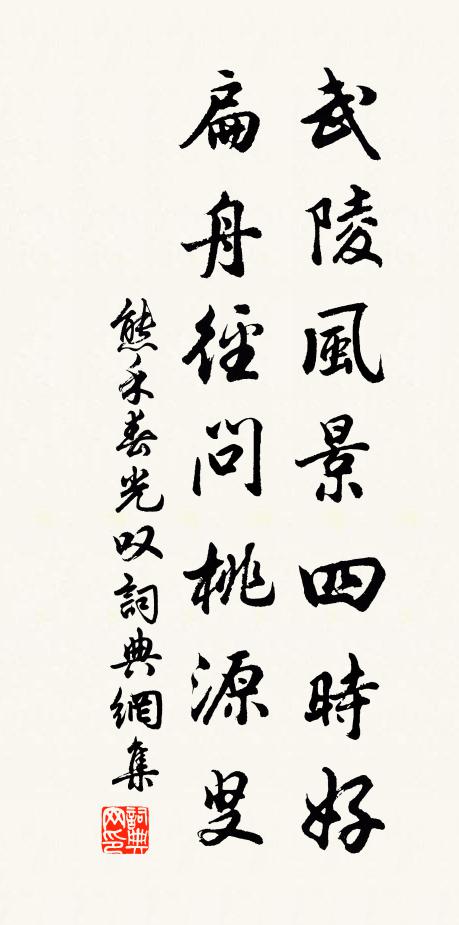 武陵風景四時好
扁舟徑問桃源叟
熊禾春光叹詞典網集
詞典网印